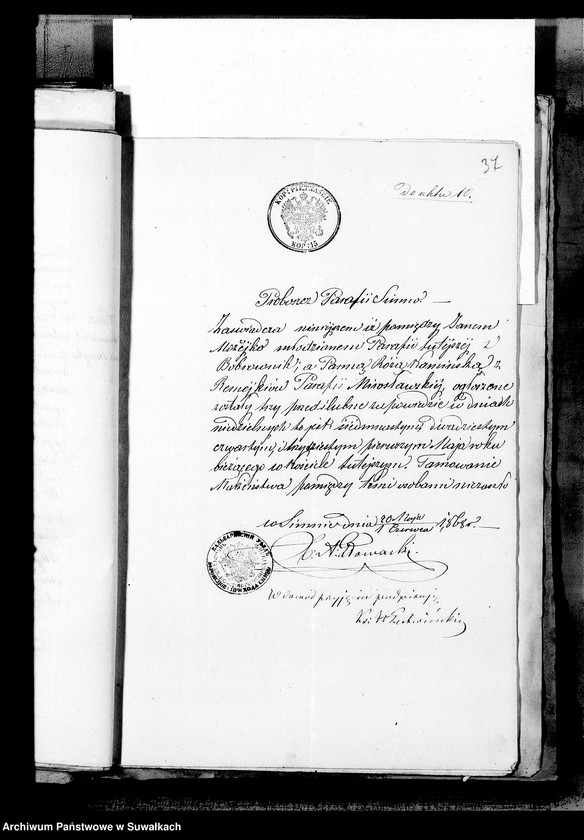 37
do aktu 10.
KOP: PIETNAŚCIE
KOP: 15
Proboszcz Parafii Simno.
Zaświadcza niniejszem iż pomiędzy Janem
Możejko młodzianem Parafii tutejszej z
Bobrownik; a Panną Różą Kamińską z
Parafii Mirosławskiej, ogłoszone
zostały trzy przedślubne zapowiedzie w dniach
niedzielnych to jest siedmnastym dwudziestym
czwartym i trzydziestym pierwszym Maja roku
bieżącego w Kościele tutejszym. Tamowanie
Małżeństwa pomiędzy temi osobami nie zaszło
w Simnie dnia 20 Maja / 1 Czerwca 1868 r.
X. A. Nowacki.
W dowód przyjęcia podpisuję
Archiwum Państwowe w Suwałkach